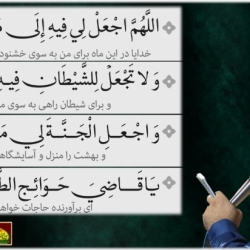 اللَّهُمَّ اجْعَلْ لِي فِيهِ إِلَى
خدایا در این ماه برای من به سوی خشنود
وَ لا تَجْعَلْ لِلشَّيْطَانِ فِيهِ
و برای شیطان راهی به سوی م
وَ اجْعَلِ الْجَنَّةَ لِي مَ
و بهشت را منزل و آسایشگاه
يَا قَاضِيَ حَوَائِجِ الطَّ
ای برآورنده حاجات خواه